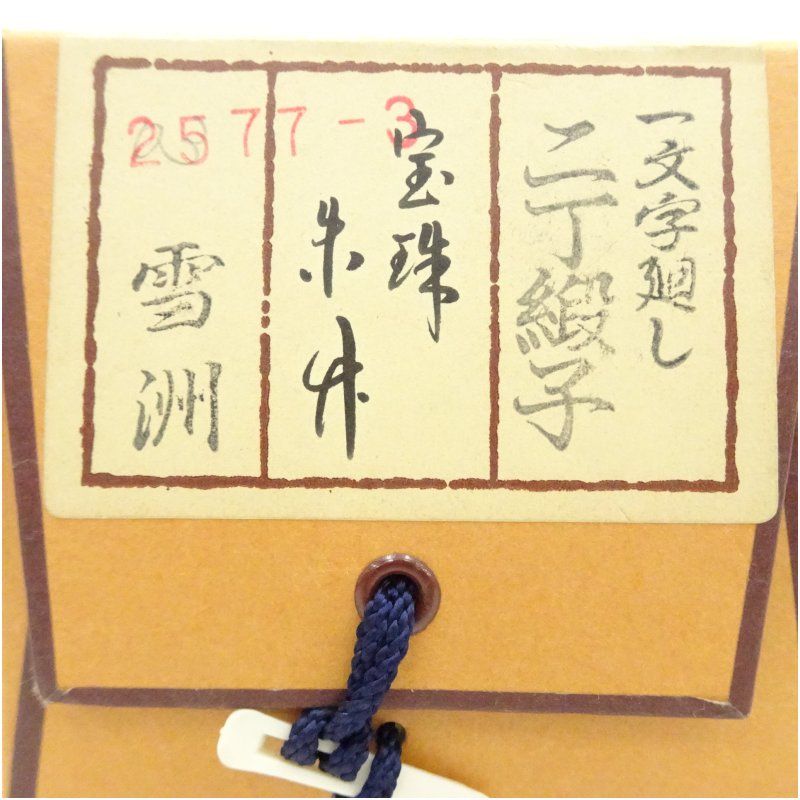 一文字廻し
二丁緞子
宝珠
朱竹
2577-3
雪洲